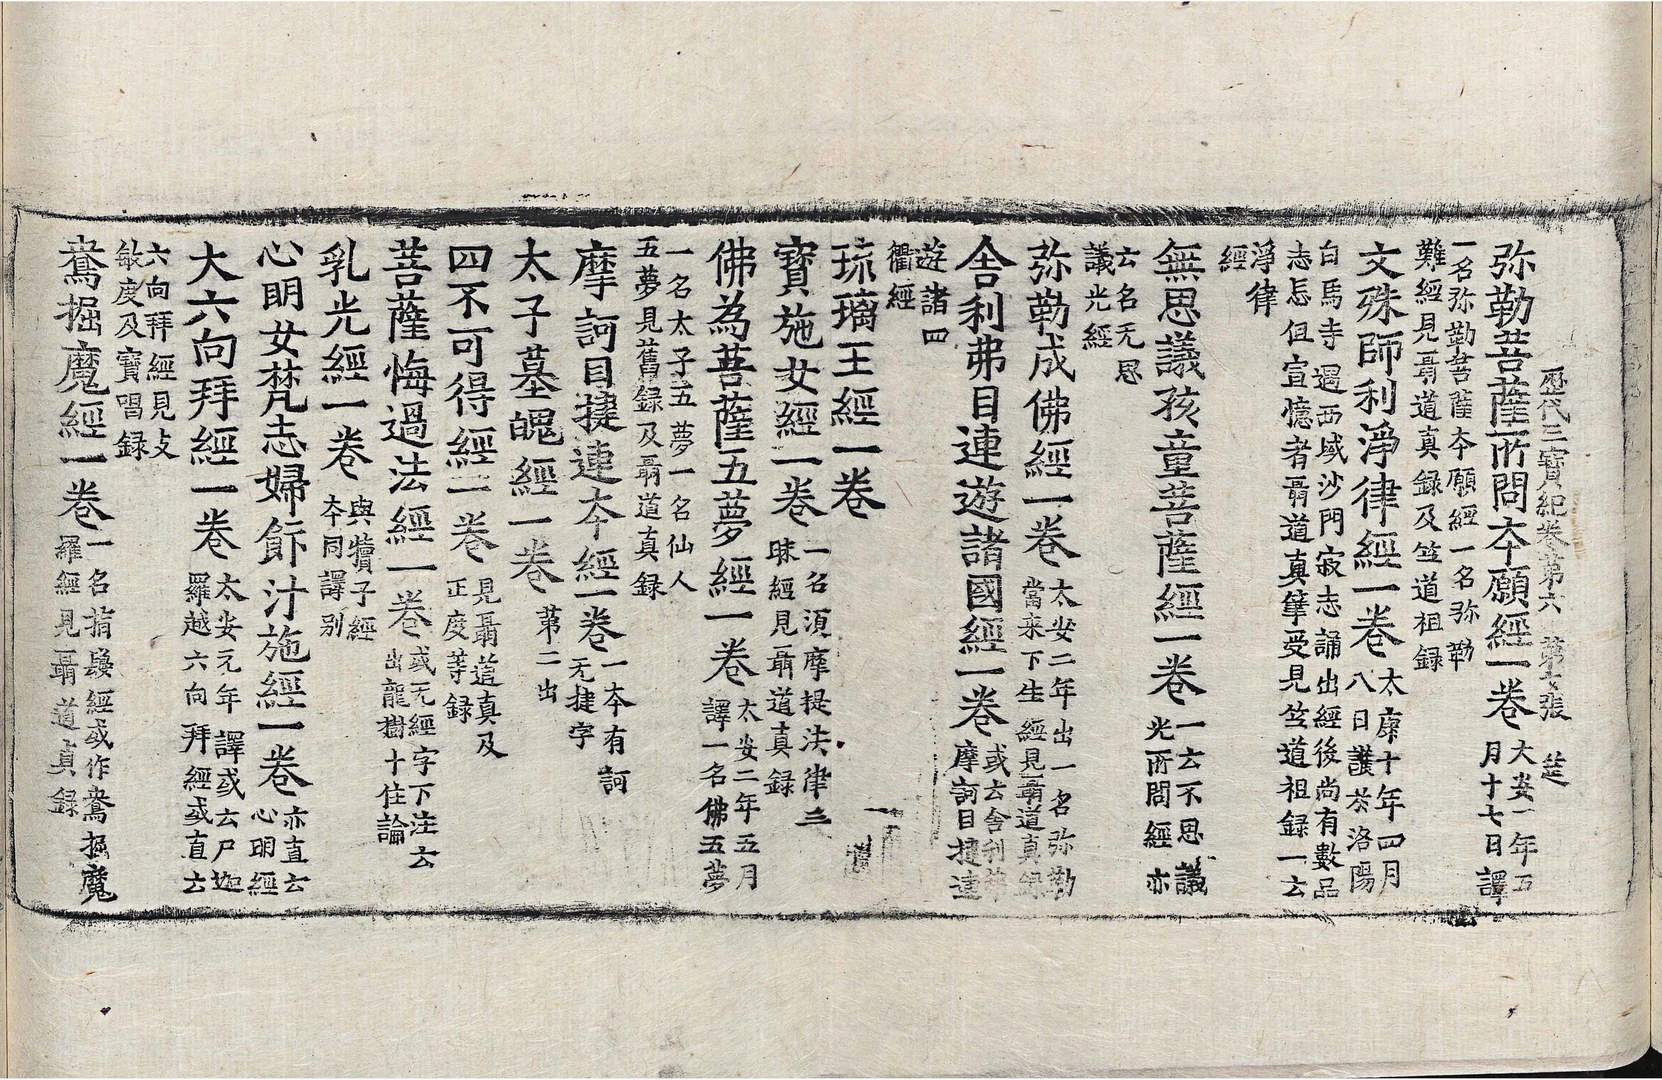 歷代三寶紀卷第六 第六張 楚
弥勒菩薩所問本願經一卷 大安一年五月十七日譯
一名弥勒菩薩本願經一名弥勒難經見聶道真錄及竺道祖錄
文殊師利淨律經一卷 太康十年四月八日護於洛陽
白馬寺遇西域沙門寂志誦出經後尚有數品志忘但宣憶者聶道真筆受見竺道祖錄一云
淨律經
無思議孩童菩薩經一卷 一云不思議光所問經亦
云名无思議光經
弥勒成佛經一卷 太安二年出一名弥勒當来下生經見聶道真錄
舍利弗目連遊諸國經一卷 或云舍利弗摩訶目揵連
遊諸四衢經
琉璃王經一卷
寶施女經一卷 一名須摩提法律三昧經見聶道真錄
佛為菩薩五夢經一卷 太安二年五月譯一名佛五夢
一名太子五夢一名仙人五夢見舊錄及聶道真錄
摩訶目揵連本經一卷 一本有訶无揵字
太子墓魄經一卷 第二出
四不可得經一卷 見聶道真及正度等錄
菩薩悔過法經一卷 或无經字下注云出龍樹十住論
乳光經一卷 與犢子經本同譯別
心明女梵志婦飰汁施經一卷 亦直云心明經
大六向拜經一卷 太安元年譯或云尸迦羅越六向拜經或直云
六向拜經見支敏度及寶唱錄
鴦掘魔經一卷 一名指鬘經或作鴦掘魔羅經見聶道真錄